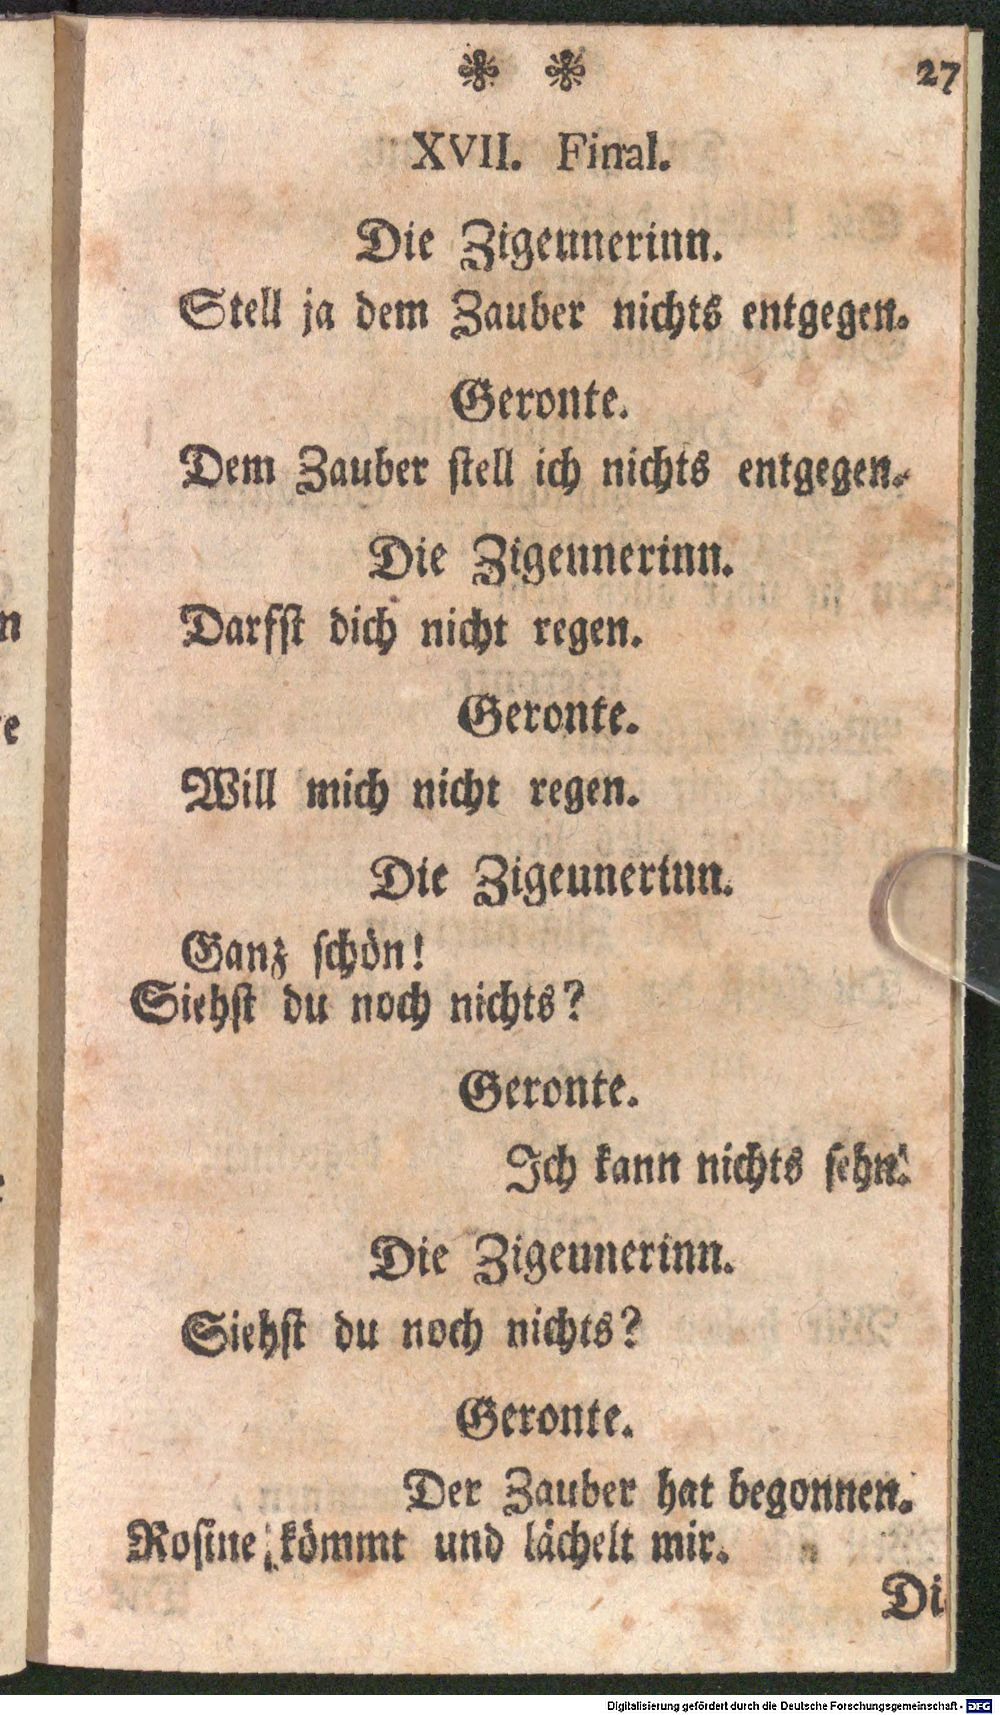 27
XVII. Final.
Die Zigeunerinn.
Stell ja dem Zauber nichts entgegen.
Geronte.
Dem Zauber stell ich nichts entgegen.
Die Zigeunerinn.
Darfst dich nicht regen.
Geronte.
Will mich nicht regen.
Die Zigeunerinn.
Ganz schön!
Siehst du noch nichts?
Geronte.
Ich kann nichts sehn.
Die Zigeunerinn.
Siehst du noch nichts?
Geronte.
Der Zauber hat begonnen.
Rosine kömmt und lächelt mir.
Di
Digitalisierung gefördert durch die Deutsche Forschungsgemeinschaft - DFG